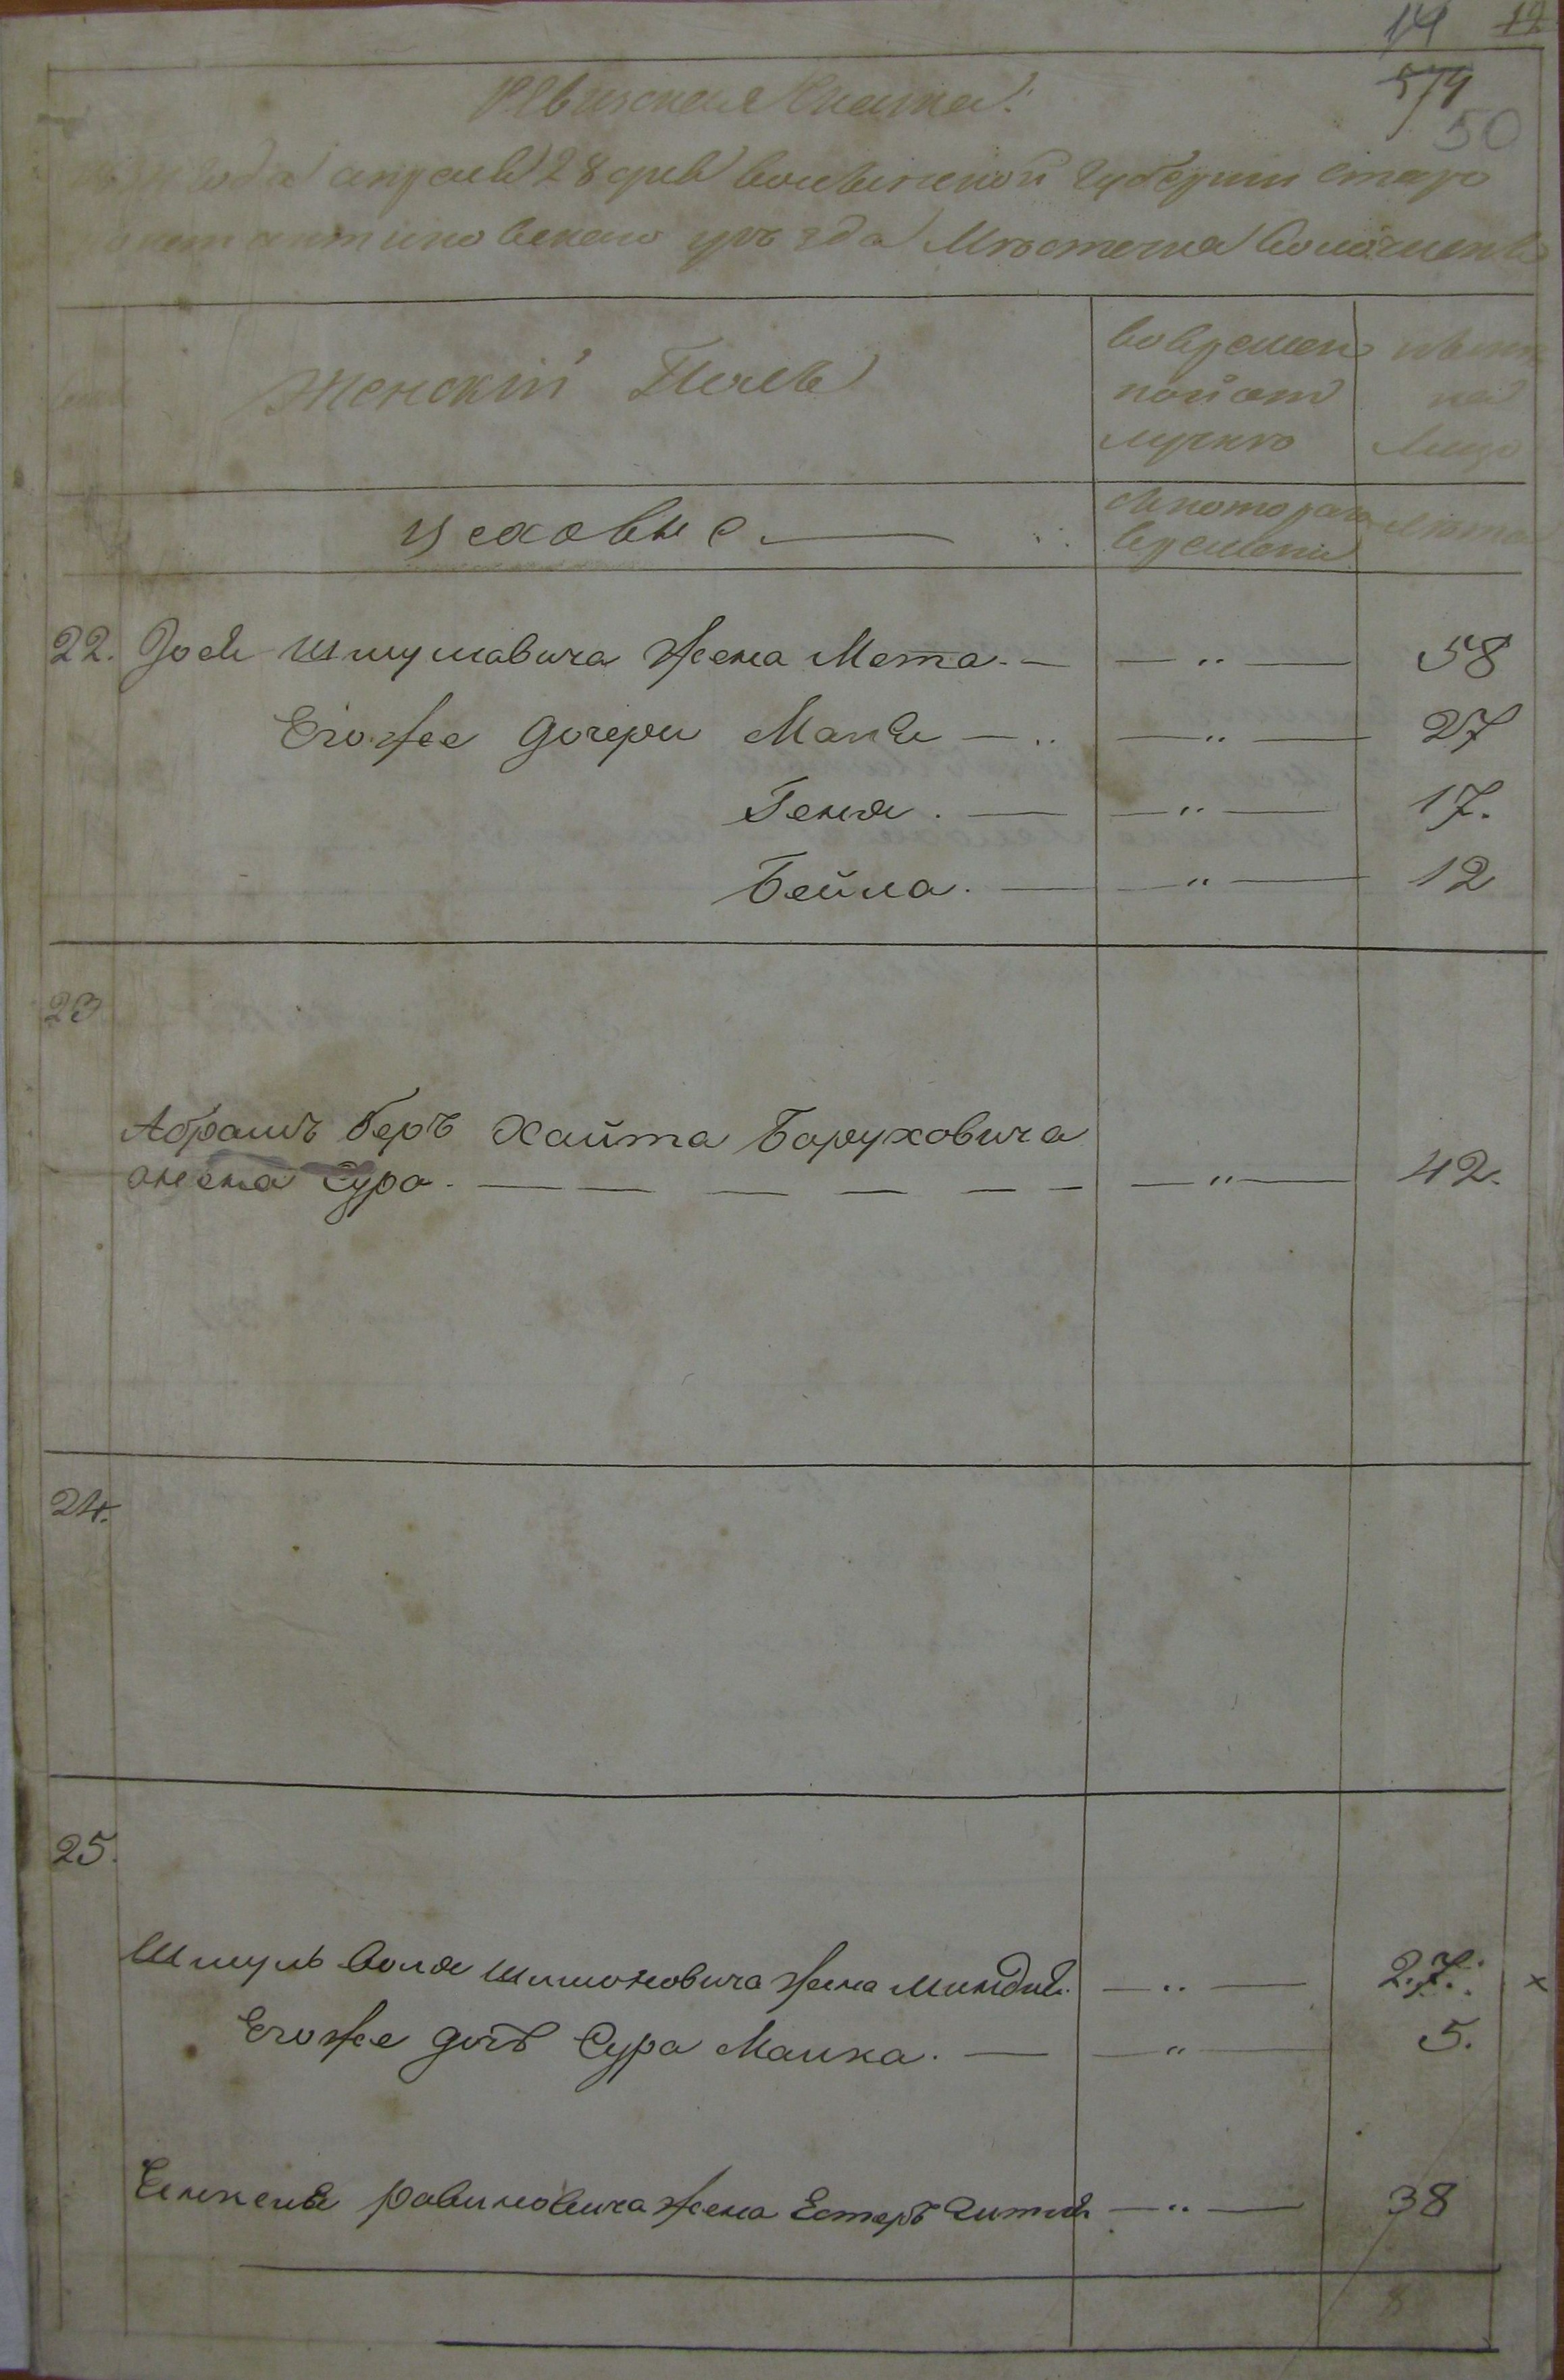 14 12
579
50
Ревизская Сказка.
года апреля 28 дня волынской губернии старо
константиновскаго уѣзда Мѣстечка
Женскій Полъ
вовремен
ной от
лучкѣ
на
Лицо
цеховые
скотораго
времени
лета
22. Іось Шмулевича жена Мета — — " — 58
Егоже дочери Маня — — " — 27
Геня. — — " — 17.
Бейла. — — " — 12
23
Абрамъ беръ Хаита Баруховича
жена Сура. — — " — 42.
24.
25.
Шмуль воля Шимоновича жена Миндля — " — 27. x
Егоже дочь Сура Малка. — — " — 5.
Равиновича жена Естеръ Гитля — " — 38
8